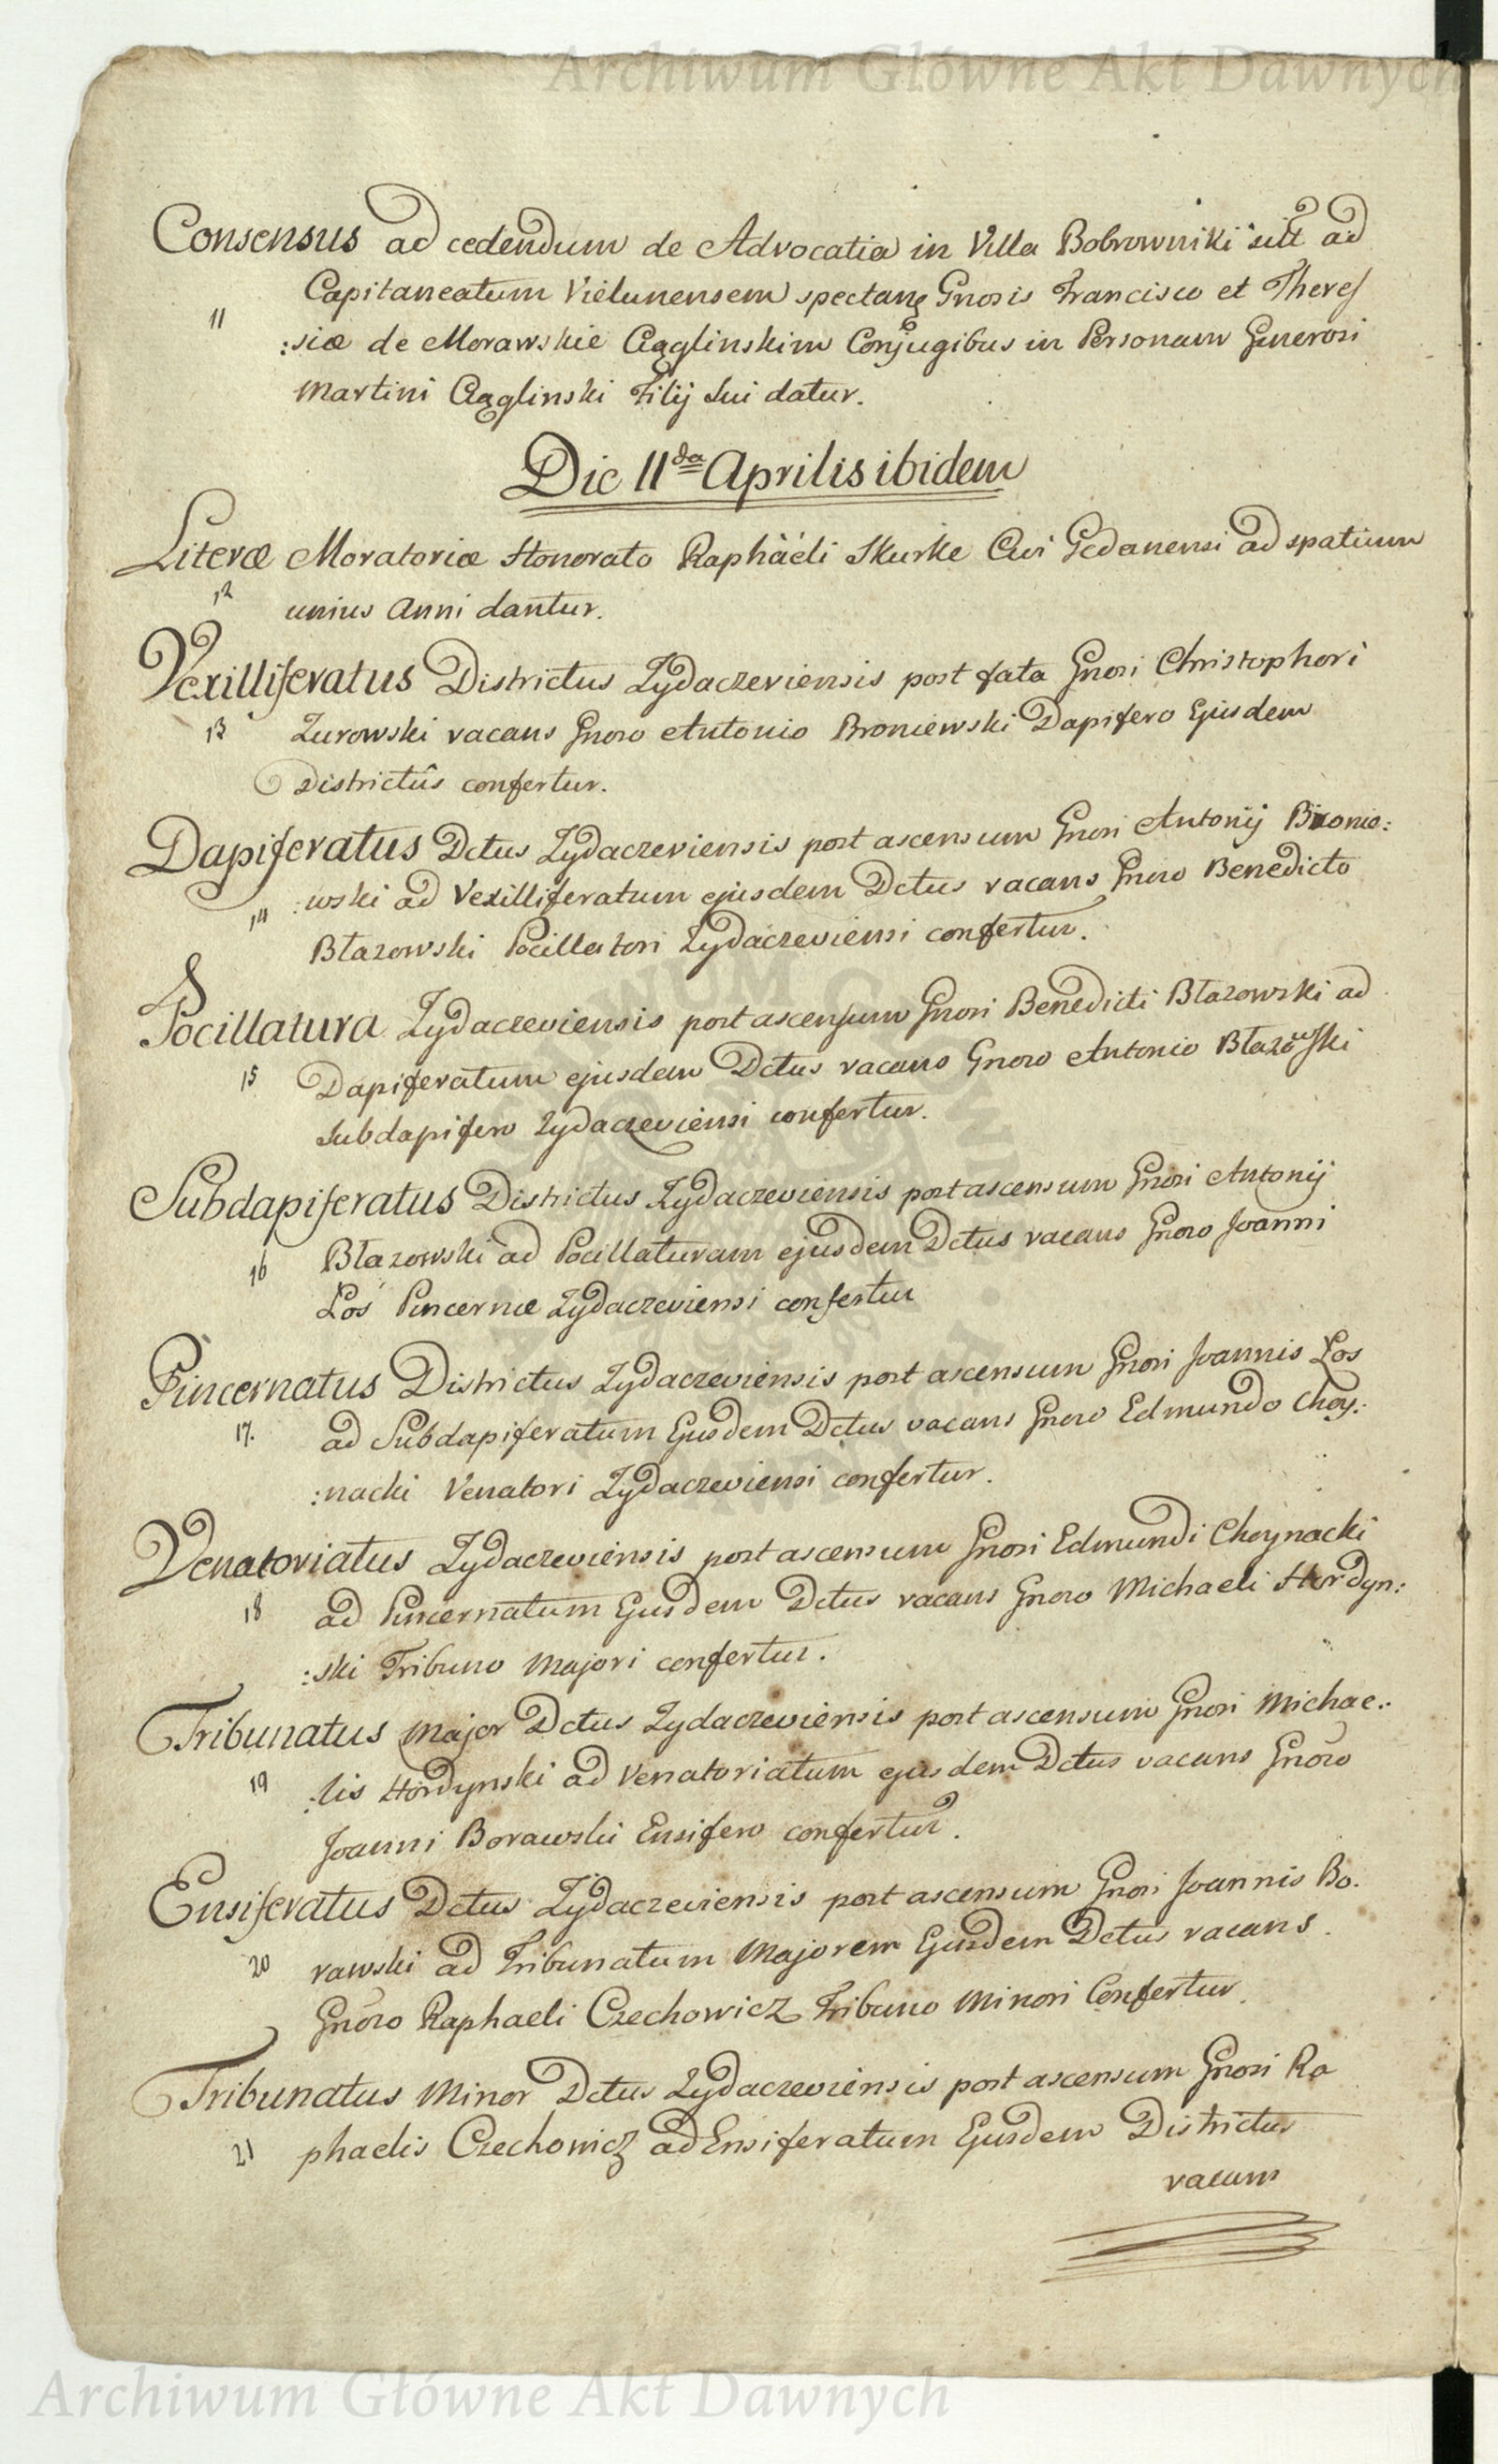 Archiwum Główne Akt Dawnych
Consensus ad cedendum de Advocatia in Villa Bobrowniki sitt ad
Capitaneatum Vielunensem spectan Gnosis Francisco et There/
11
:siæ de Morawskie Cąglinskim Conjugibus in Personam Generosi
Martini Cąglinski Filij Sui datur.
Die 11da Aprilis ibidem
Literæ Moratoriæ Honorato Raphaëli Skurke Civi Gedanensi ad spatium
12 unius Anni dantur.
Vexilliferatus Districtus Zydaczeviensis post fata Gnosi Christophori
13 Zurowski vacans Gnoso Antonio Broniewski Dapifero Ejusdem
Districtûs confertur.
Dapiferatus Dctus Zydaczeviensis post ascensum Gnosi Antonij Bronie:
14 :wski ad Vexilliferatum ejusdem Dctus vacans Gnoso Benedicto
Błazowski Pocillatori Zydaczeviensi confertur.
Pocillatura Zydaczeviensis post ascensum Gnosi Benedicti Błazowski ad
15 Dapiferatum ejusdem Dctus vacans Gnoso Antonio Błazowski
Subdapifero Zydaczeviensi confertur.
Subdapiferatus Districtus Zydaczeviensis post ascensum Gnosi Antonij
16 Błazowski ad Pocillaturam ejusdem Dctus vacans Gnoso Joanni
Łoś Pincernæ Zydaczeviensi confertur
Pincernatus Districtus Zydaczeviensis post ascensum Gnosi Joannis Łos
17. ad Subdapiferatum Ejusdem Dctus vacans Gnoso Edmundo Choy:
:nacki Venatori Zydaczeviensi confertur.
Venatoriatus Zydaczeviensis post ascensum Gnosi Edmundi Choynacki
18 ad Pincernatum Ejusdem Dctus vacans Gnoso Michaeli Hordyn:
:ski Tribuno Majori confertur.
Tribunatus Major Dctus Zydaczeviensis post ascensum Gnosi Michae:
19 :lis Hordynski ad Venatoriatum ejusdem Dctus vacans Gnoso
Joanni Borawski Ensifero confertur.
Ensiferatus Dctus Zydaczeviensis post ascensum Gnosi Joannis Bo.
20 rawski ad Tribunatum Majorem Ejusdem Dctus vacans.
Gnoso Raphaeli Czechowicz Tribuno Minori Confertur.
Tribunatus Minor Dctus Zydaczeviensis post ascensum Gnosi Ra
21 phaelis Czechowicz ad Ensiferatum Ejusdem Districtus
vacans
Archiwum Główne Akt Dawnych